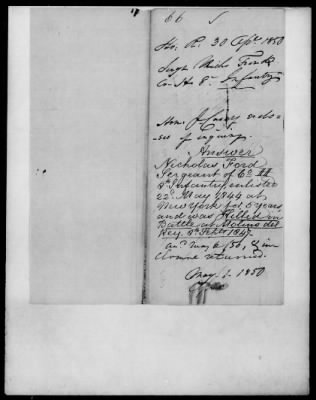 66
Ho. R. 30 Apl. 1850
Sergt. Nichs. Ford
Co. H. 8th Infantry
Hon. J.
of inquiry.
Answer
Nicholas Ford
Sergeant of Co. H
8th Infantry, enlisted
22d. May 1844 at
New York for 5 years
and was Killed in
Battle at Molino del
Rey. 8th Septr 1847.
ansd. May 1, /50, &
returned.
May 1. 1850